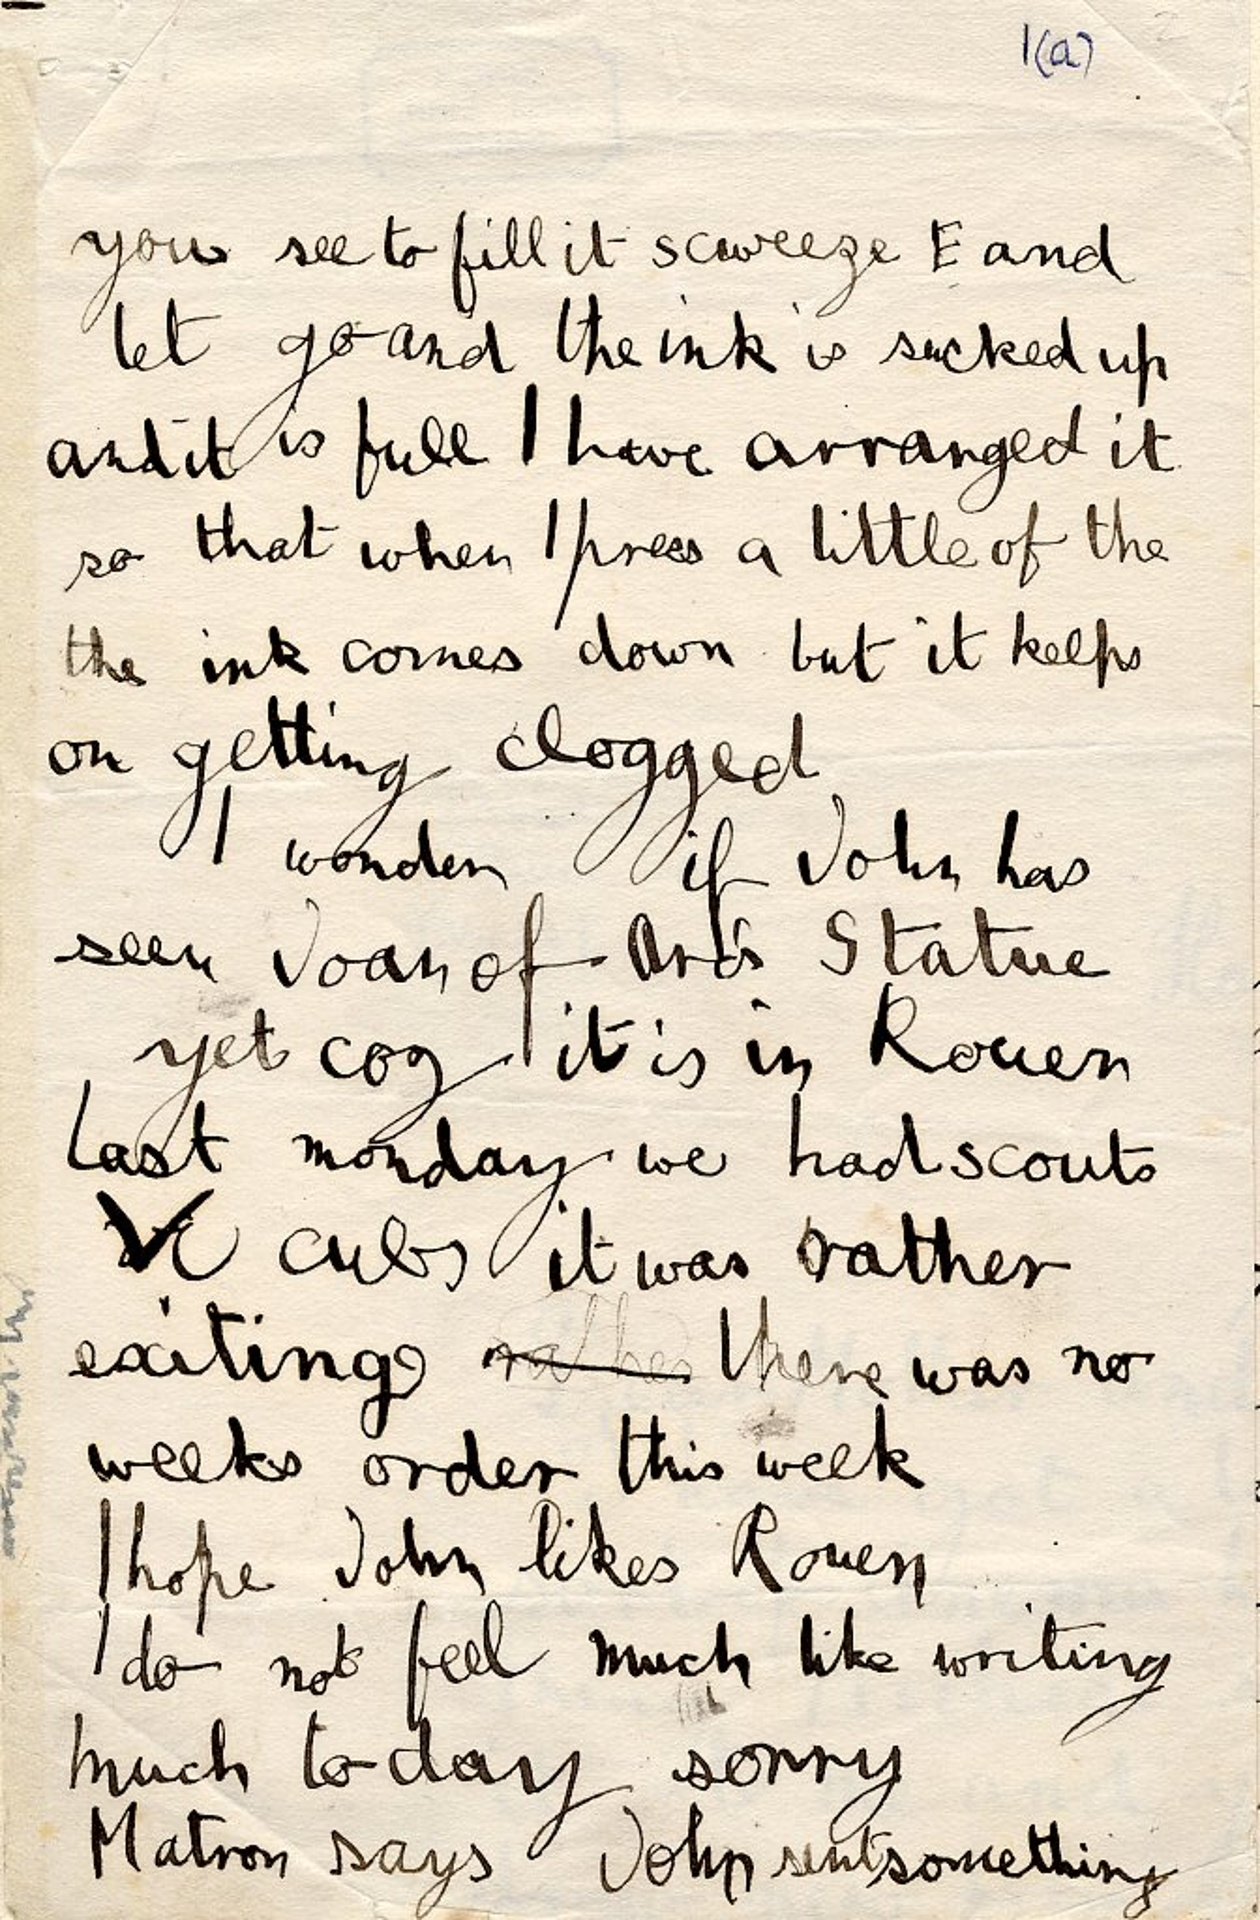 1(a)
you see to fill it scweeze E and
let go and the ink is sucked up
and it is full I have arranged it
so that when I press a little of the
the ink comes down but it keeps
on getting clogged
I wonder if John has
seen Joan of Arc's Statue
yet coz it is in Rouen
Last monday we had scouts
cubs it was rather
exiting rather there was no
weeks order this week
I hope John likes Rouen
I do not feel much like writing
much to-day sorry
Matron says John sent something